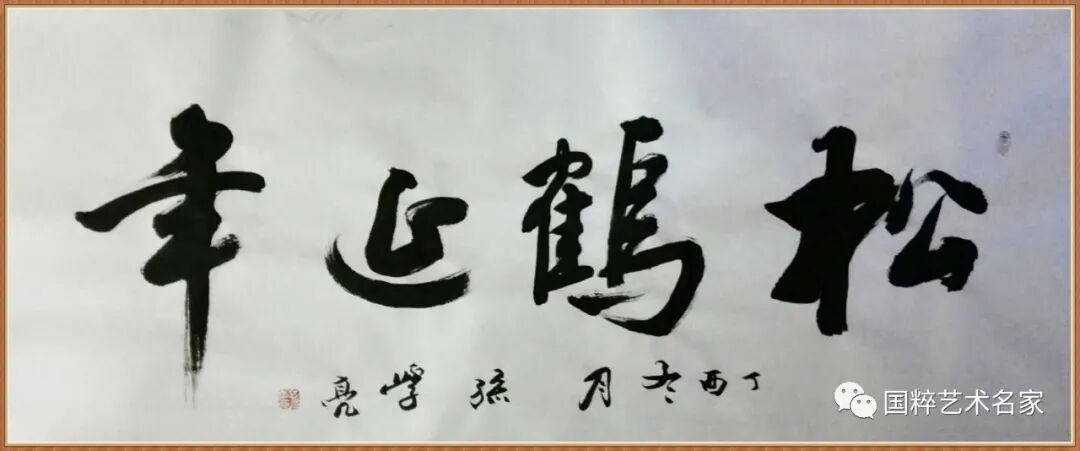 松鹤延年
丁酉冬月 孙学亮
国粹艺术名家